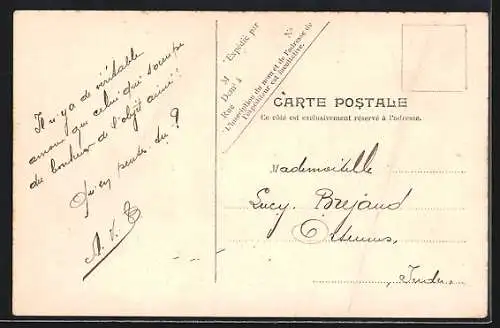 Il n'y a de véritable
amour que celui qui s'occupe
du bonheur de l'objet aimé !
Qu'en penses-tu ?
A. V.
M Expédié par
Dem<sup>t</sup> à
Rue N°
L'inscription du nom et de l'adresse de
l'expéditeur est facultative.
CARTE POSTALE
Ce côté est exclusivement réservé à l'adresse.
Mademoiselle
Lucy. Brejaud
Indre